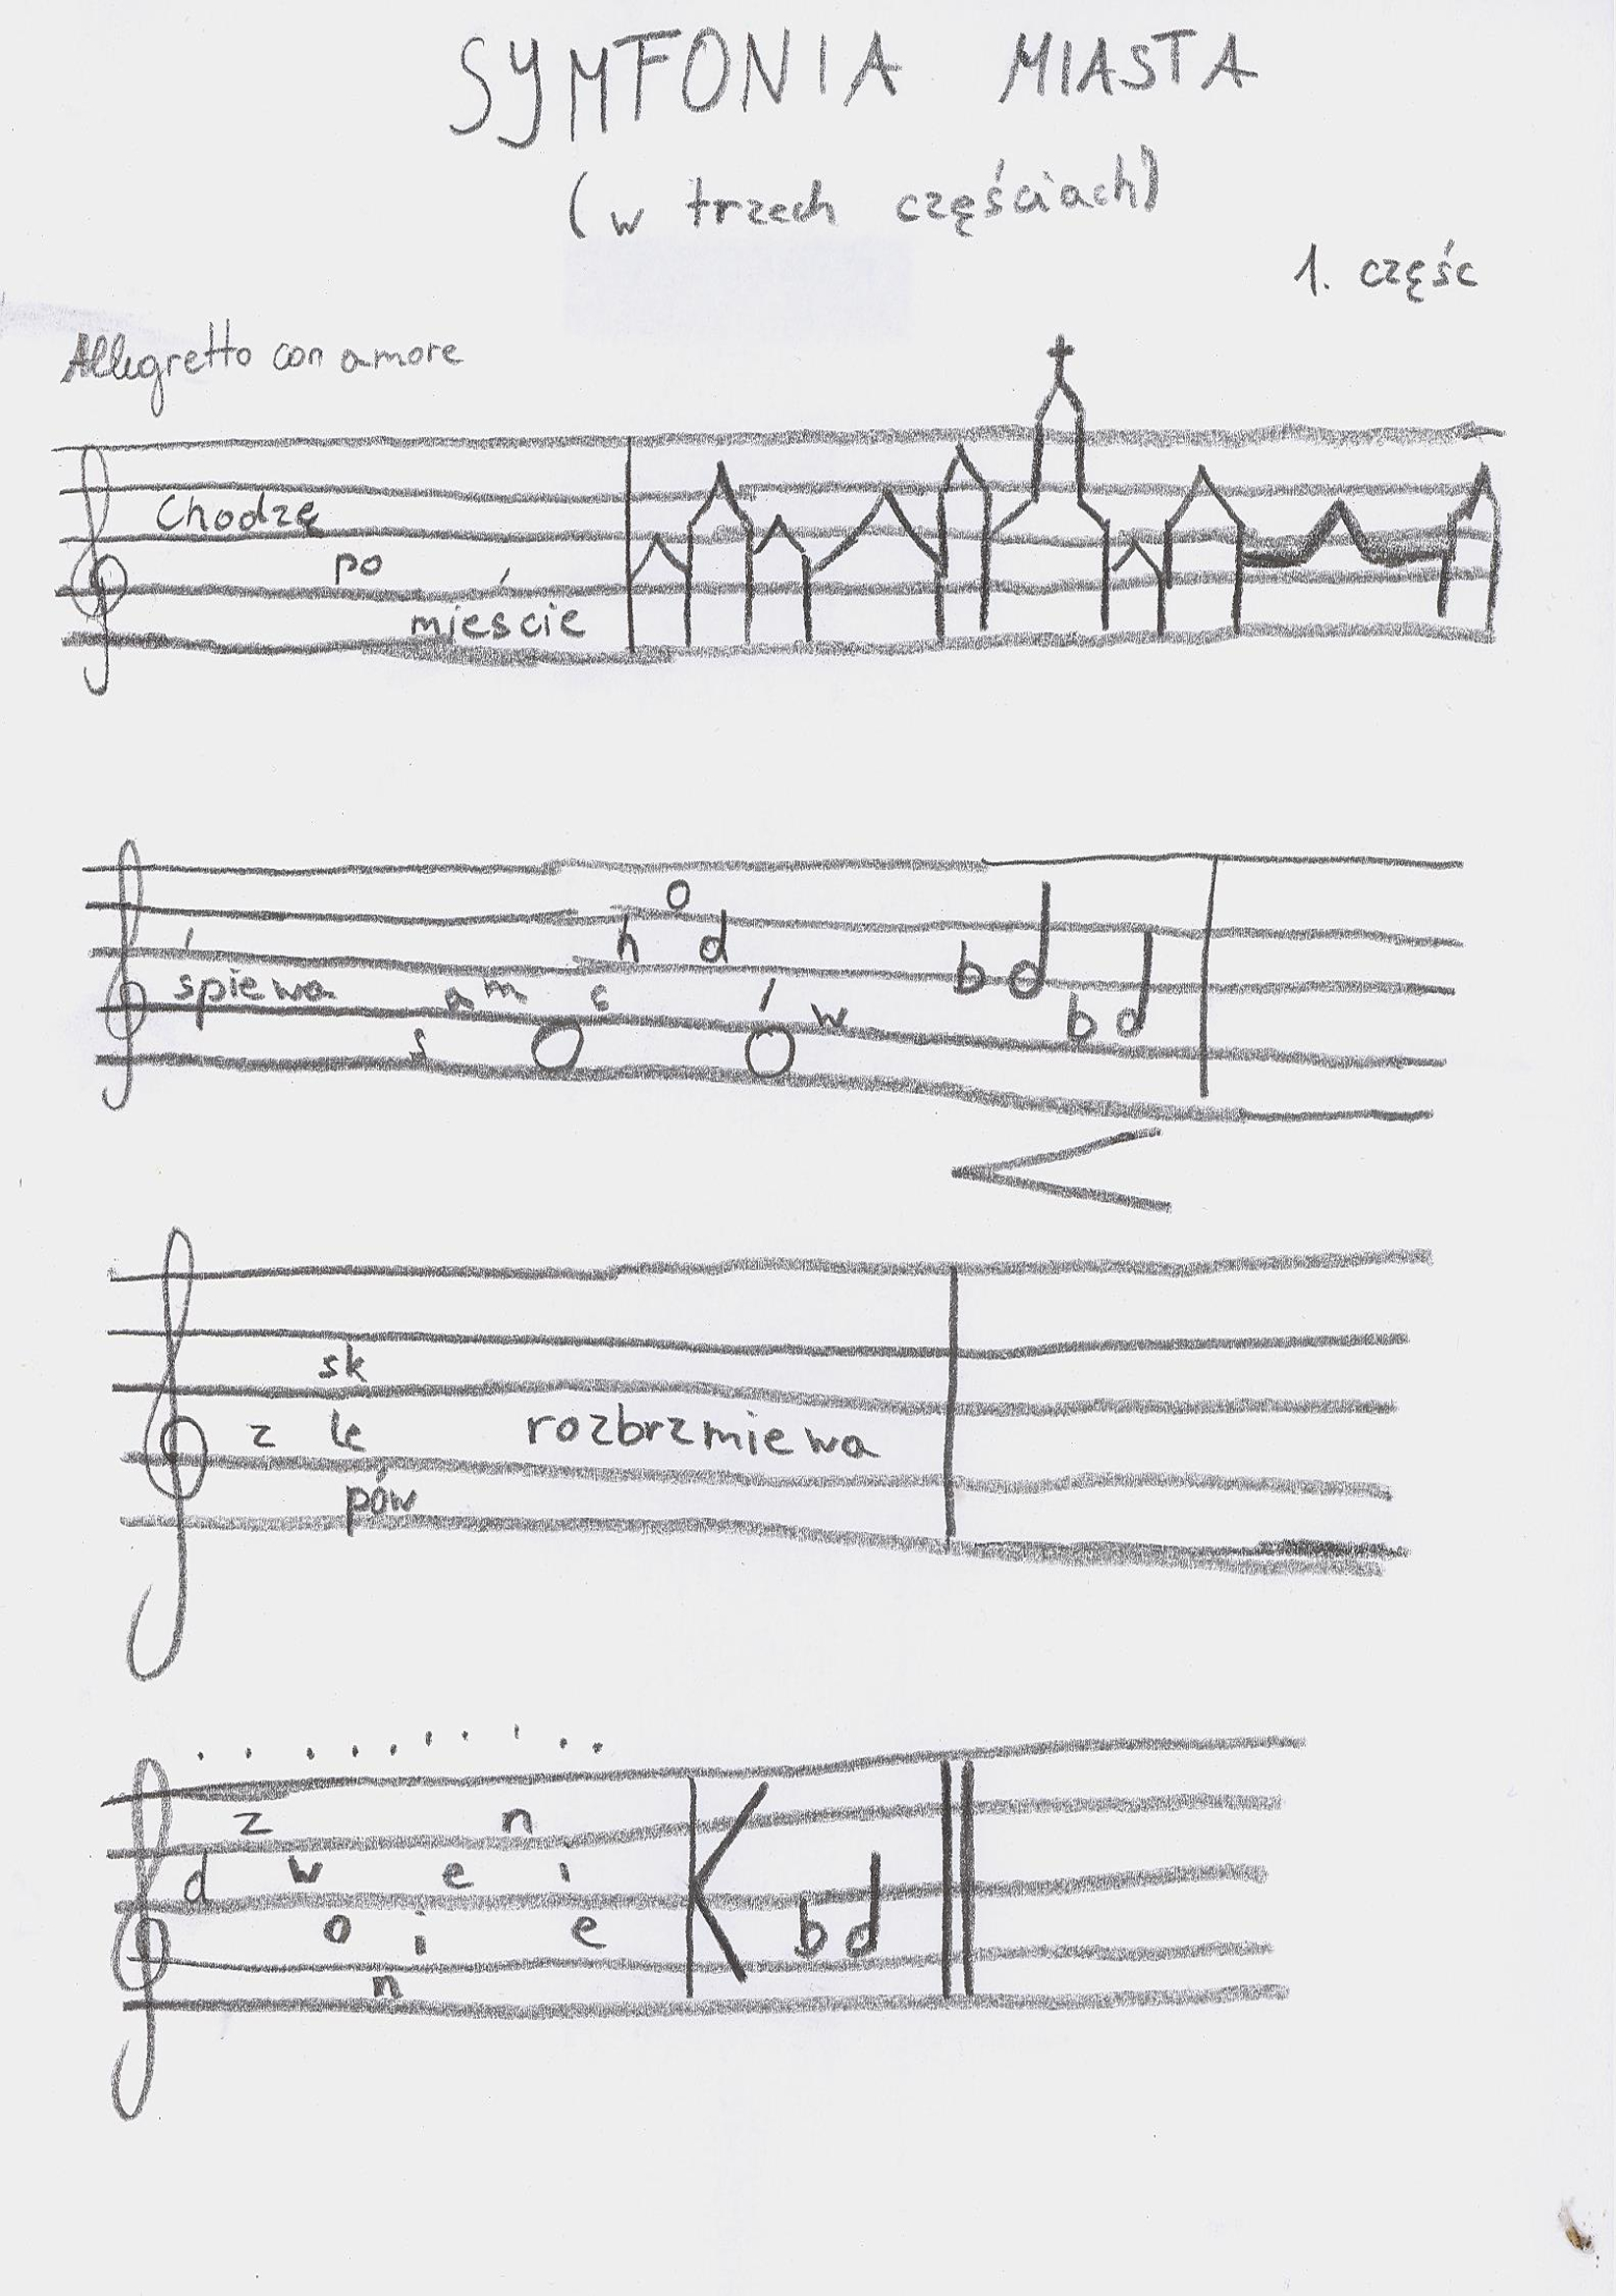 SYMFONIA MIASTA
(w trzech częściach)
1. część
Allegretto con amore
Chodzę
po
mieście
śpiewa samochodów bd bd
z sklepów rozbrzmiewa
dzwonienie K bd